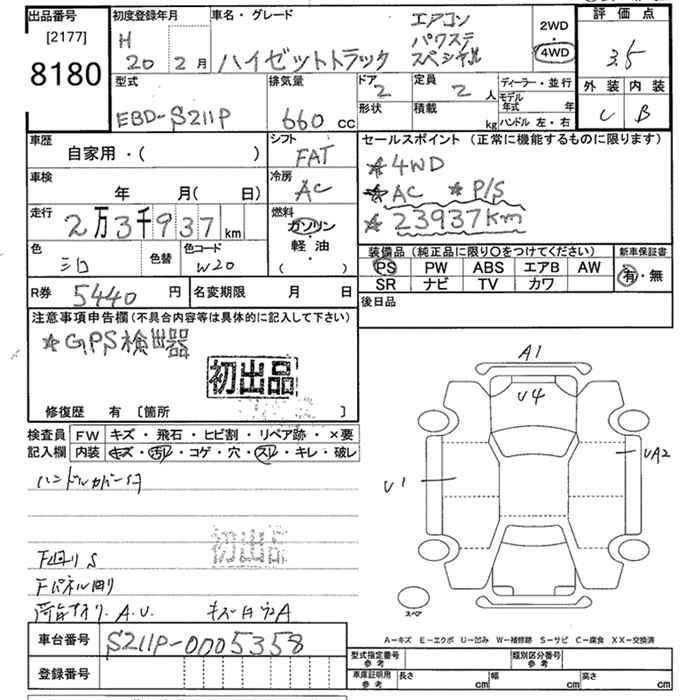 出品番号
[2177]
8180
初度登録年月
H
20 2月
車名・グレード
ハイゼットトラック
エアコン
パワステ
スペシャル
2WD
4WD
評価点
3.5
外装 内装
C B
型式
EBD-S211P
排気量
660 cc
ドア
2
定員
2 人
ディーラー・並行
モデル年式 年
形状
積載 kg
ハンドル 左・右
車歴
自家用・( )
シフト
FAT
車検
年 月( 日)
冷房
AC
走行
2万3千937km
燃料
ガソリン・
軽油・
( )
色
シロ
色替
色コード
W20
R券 5440 円
名変期限 月 日
セールスポイント (正常に機能するものに限ります)
★4WD
★AC ★P/S
★23937Km
装備品 (純正品に限り〇をつけてください)
新車保証書
PS PW ABS エアB AW
SR ナビ TV カワ
有・無
後日品
注意事項申告欄 (不具合内容等は具体的に記入して下さい)
★GPS検出器
初出品
修復歴 有 [箇所 ]
検査員 FW キズ・飛石・ヒビ割・リペア跡・×要
記入欄 内装 キズ・汚レ・コゲ・穴・スレ・キレ・破レ
ハンドルカバー付
初出品
A1
U4
U1
UA2
スペア
A-キズ E-エクボ U-凹み W-補修跡 S-サビ C-腐食 XX-交換済
車台番号 S211P-0005358
登録番号
型式指定番号
参考
類別区分番号
参考
車庫証明用
参考
長さ cm
幅 cm
高さ cm